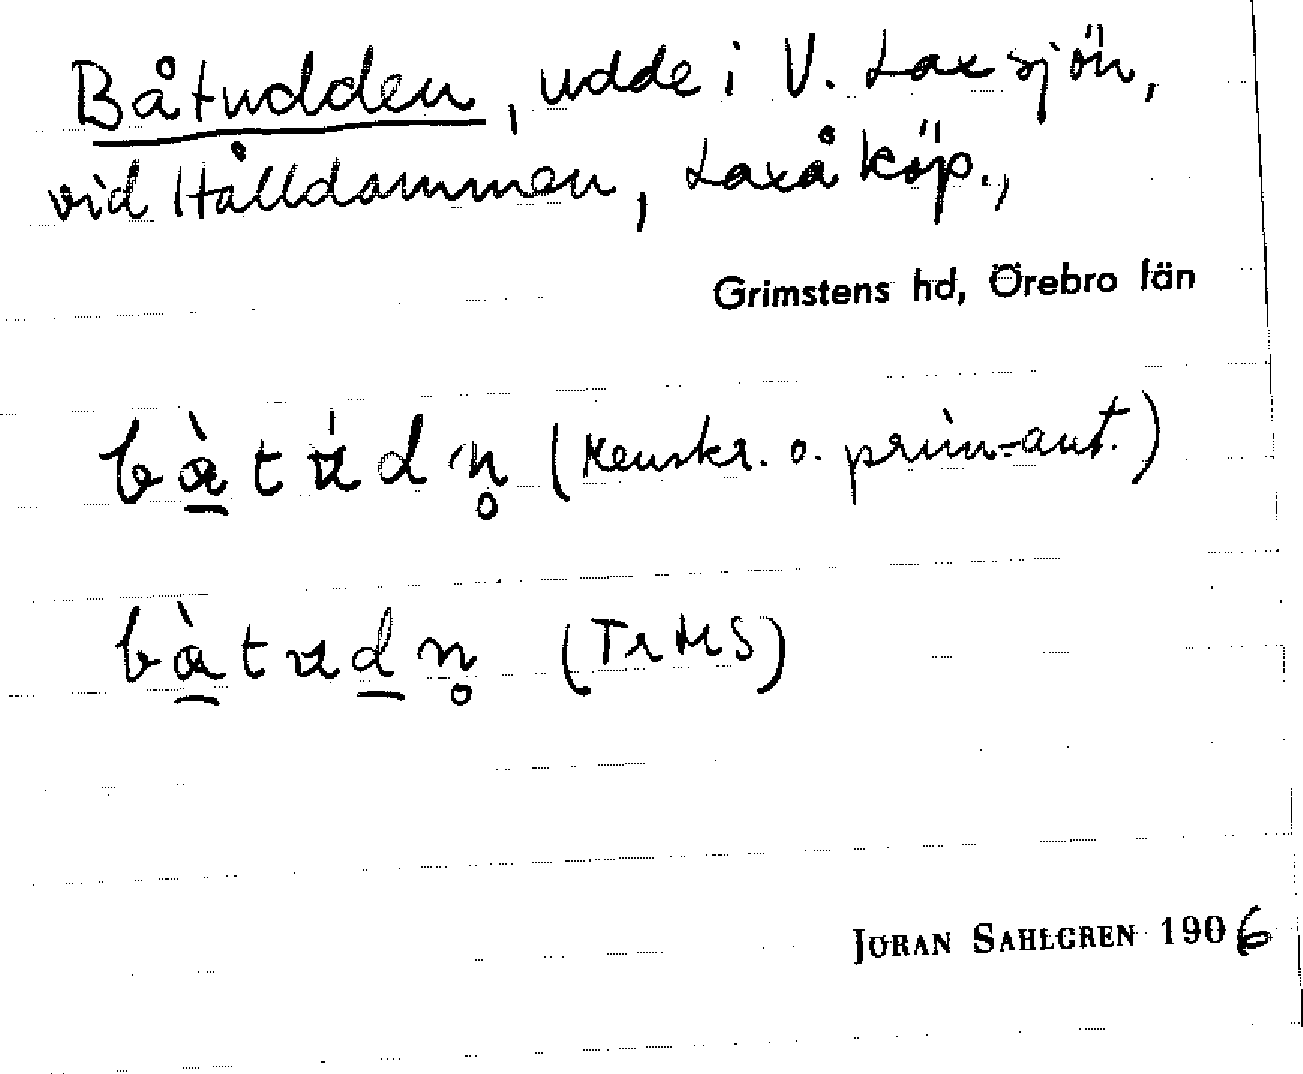 Båtudden, udde i V. Laxsjön,
vid Hålldammen, Laxå köp.,
Grimstens hd, Örebro län
bàtudn̥ (Renskr. o. prim-ant.)
bàtudn̥ (TrMS)
JÖRAN SAHLGREN 1906